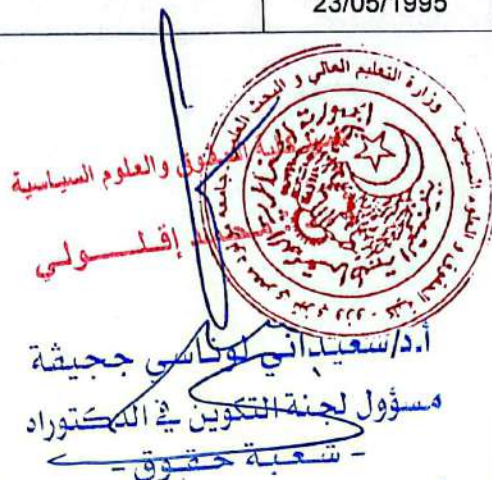 23/05/1995
وزارة التعليم العالي و البحث العلمي
عميد كلية الحقوق والعلوم السياسية
إقلـــولي
أ.د/سعيداني لوناسي ججيقة
مسؤول لجنة التكوين في الدكتوراه
- شعبة حقوق -